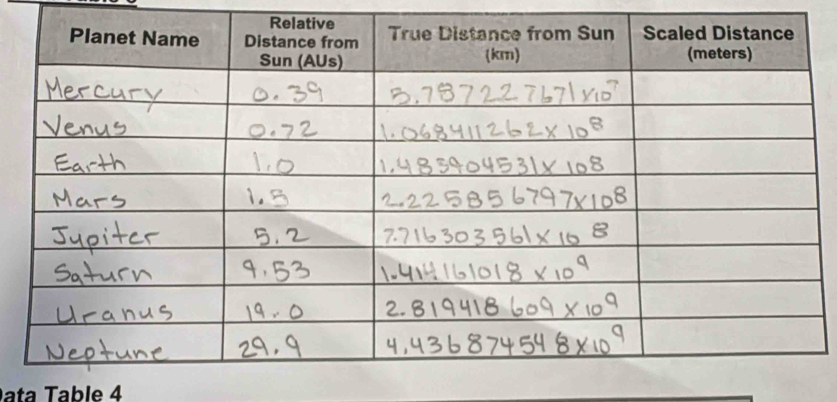 Planet Name Relative Distance from Sun (AUs) True Distance from Sun (km) Scaled Distance (meters)
Mercury 0.39 5.787227671x10^7
Venus 0.72 1.068411262x10^8
Earth 1.0 1.483904531x10^8
Mars 1.5 2.225856797x10^8
Jupiter 5.2 7.716303561x10^8
Saturn 9.53 1.414161018x10^9
Uranus 19.0 2.819418609x10^9
Neptune 29.9 4.436874548x10^9
Data Table 4